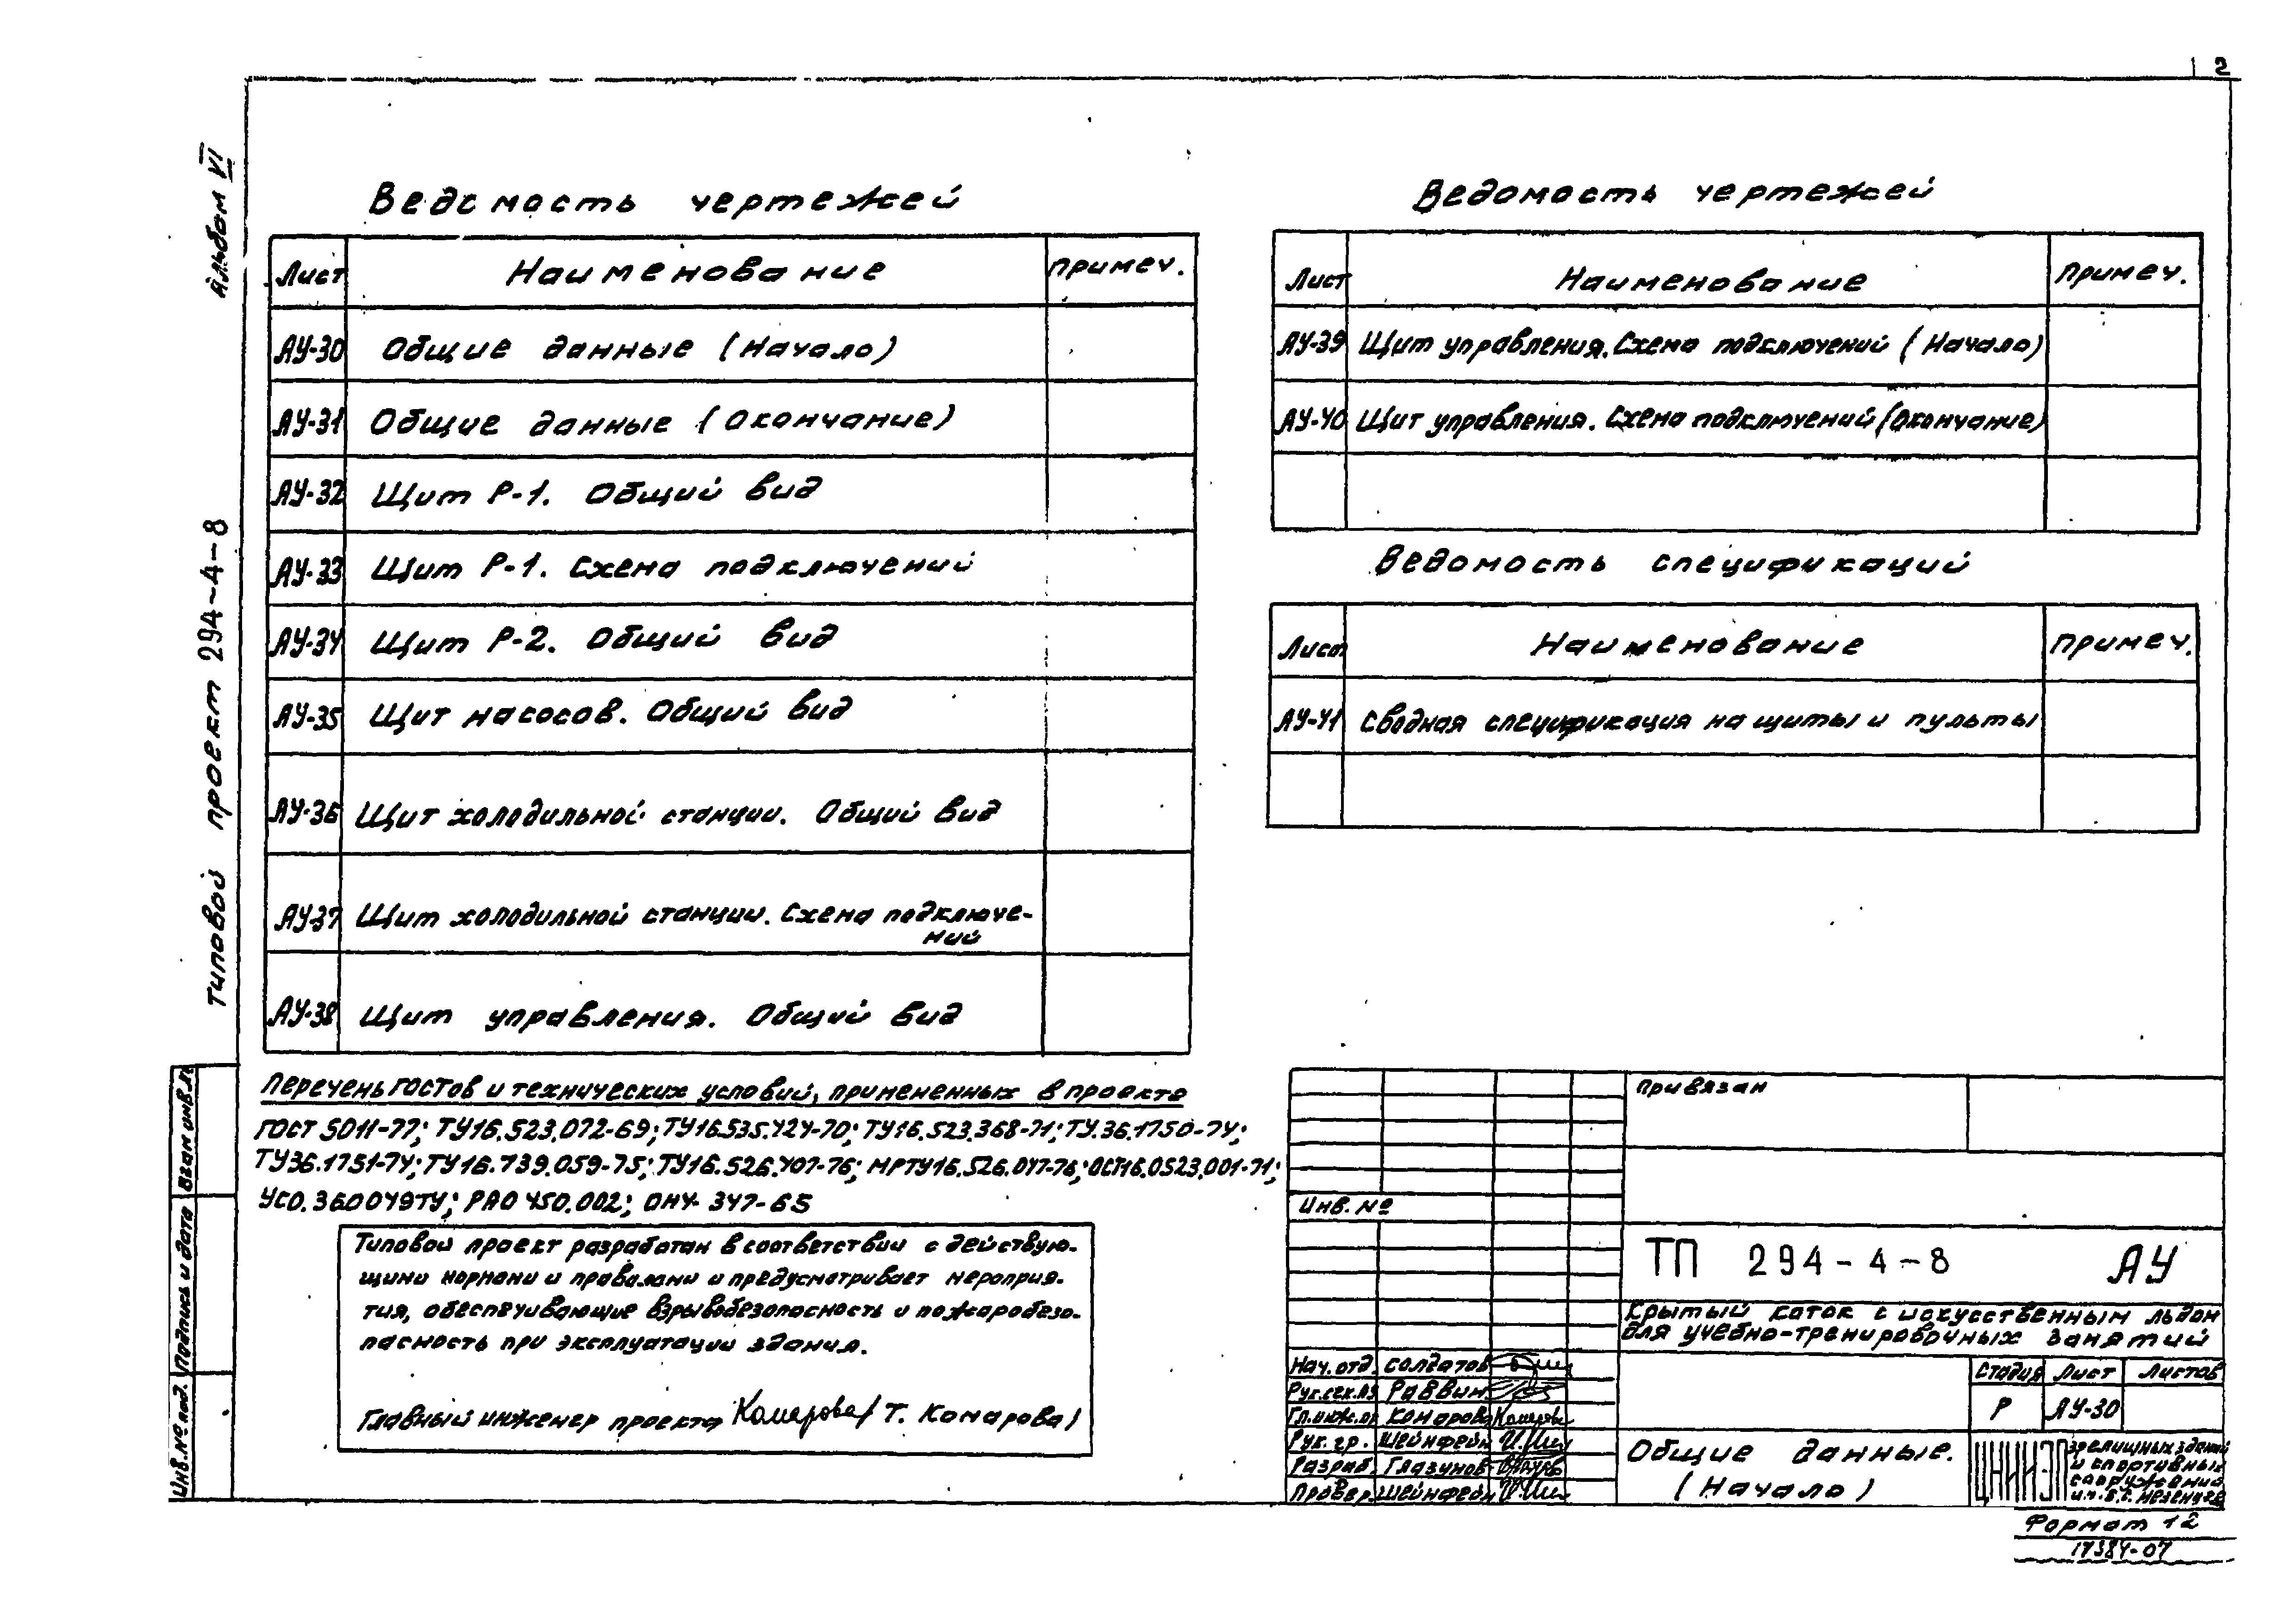 2
Альбом VI
Типовой проект 294-4-8
Ведомость чертежей
Лист Наименование Примеч.
АУ-30 Общие данные (Начало)
АУ-31 Общие данные (Окончание)
АУ-32 Щит Р-1. Общий вид
АУ-33 Щит Р-1. Схема подключений
АУ-34 Щит Р-2. Общий вид
АУ-35 Щит насосов. Общий вид
АУ-36 Щит холодильной станции. Общий вид
АУ-37 Щит холодильной станции. Схема подключе-
ний
АУ-38 Щит управления. Общий вид
Ведомость чертежей
Лист Наименование Примеч.
АУ-39 Щит управления. Схема подключений (Начало)
АУ-40 Щит управления. Схема подключений (Окончание)
Ведомость спецификаций
Лист Наименование Примеч.
АУ-41 Сводная спецификация на щиты и пульты
Перечень гостов и технических условий, примененных в проекте
ГОСТ 5011-77; ТУ16.523.072-69; ТУ16.535.424-70; ТУ16.523.368-71; ТУ.36.1750-74;
ТУ36.1751-74; ТУ16.739.059-75; ТУ16.526.407-76; МРТУ16.526.047-76; ОСТ16.0523.001-71;
УСО.360049ТУ; РАО 450.002; ОНУ-347-65
Типовой проект разработан в соответствии с действую-
щими нормами и правилами и предусматривает мероприя-
тия, обеспечивающие взрывобезопасность и пожаробезо-
пасность при эксплуатации здания.
Главный инженер проекта Комарова (Т. Комарова)
Взам инв.№
Подпись и дата
Инв.№ под.
Привязан
Инв. №
ТП 294-4-8 АУ
Крытый каток с искусственным льдом
для учебно-тренировочных занятий
Нач. отд. Солдатов
Рук.сек. Раввин
Гл.инж.пр Комарова Комарова
Рук. гр. Шейнфейн
Разраб. Глазунов
Провер. Шейнфейн
Стадия Лист Листов
Р АУ-30
Общие данные.
(Начало)
ЦНИИЭП зрелищных зданий
и спортивных
сооружений
им. Б.С. Мезенцева
Формат 12
17384-07